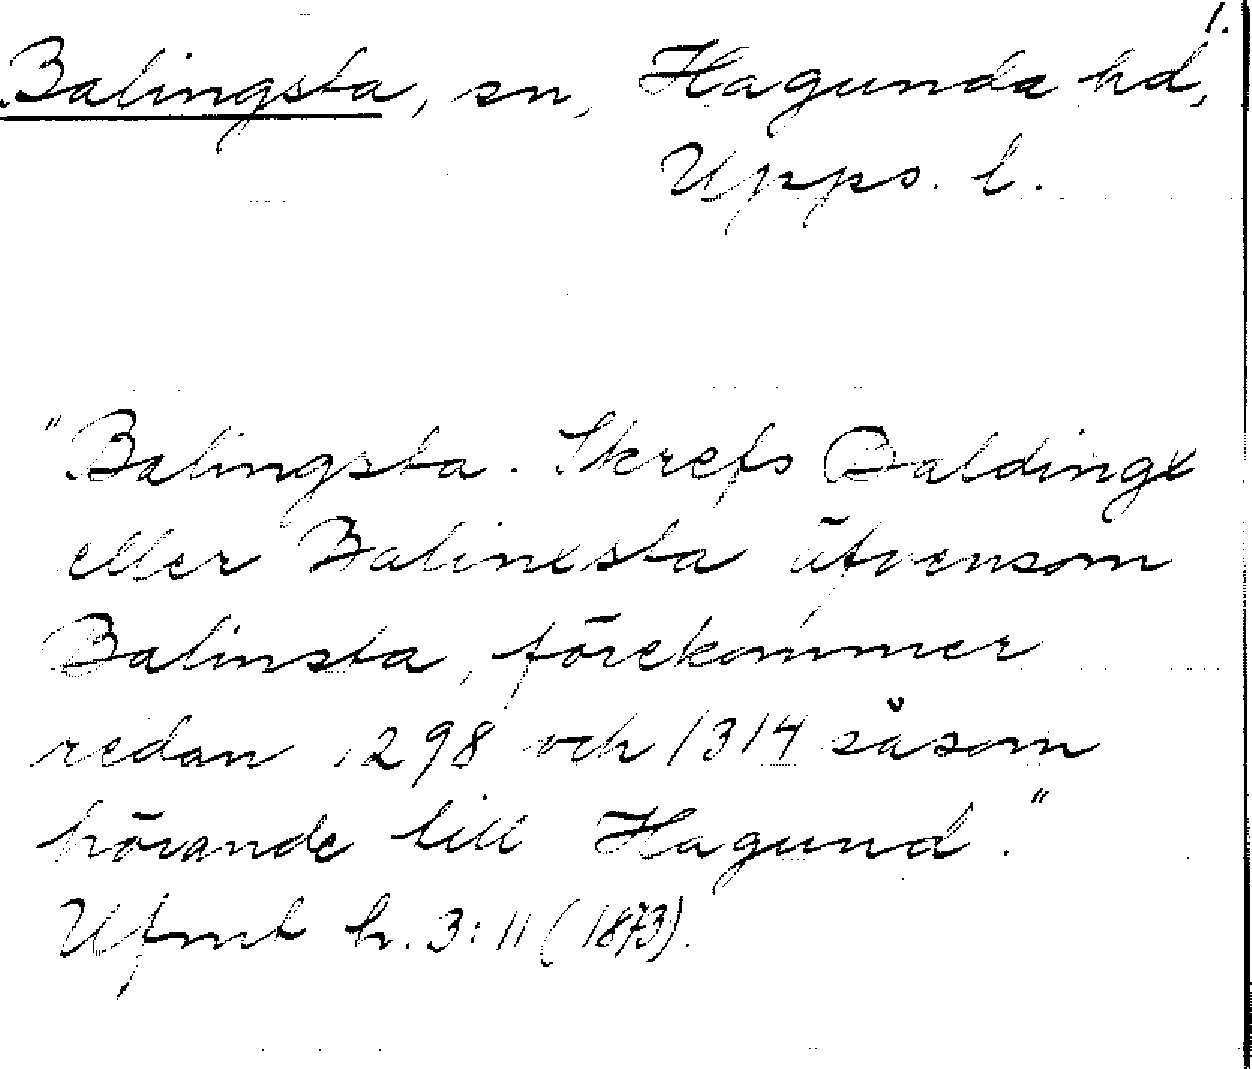 1.
Balingsta, sn, Hagunda hd,
Upps. l.
"Balingsta. Skrefs Baldinge
eller Balinesta äfvensom
Balinsta, förekommer
redan 1298 och 1314 såsom
hörande till Hagund."
Ufmt h. 3:11 (1873).